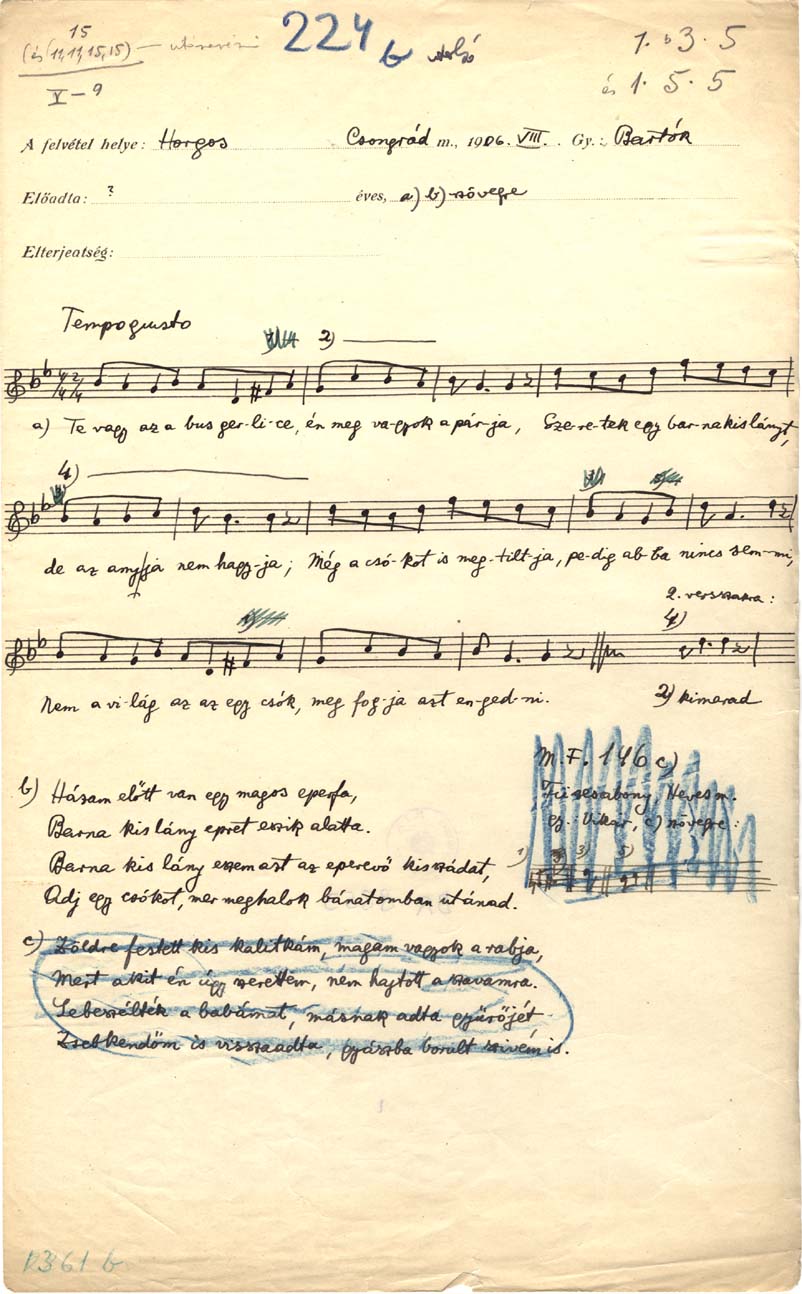 15
(és 11, 11, 15, 15) —
V – 9
224 b alsó
1. b3. 5
és 1. 5. 5
A felvétel helye: Horgos Csongrád m., 1906. VIII. Gy.: Bartók
Előadta: ? éves, a) b) szövegre
Elterjeatség:
Tempo giusto
2)
4/4 2/4
a) Te vagy az a bus ger-li-ce, én meg va-gyok a pár-ja, Sze-re-tek egy bar-na kis lányt,
4)
de az anyja nem hagy-ja; Még a csó-kot is meg-tilt-ja, pe-dig ab-ba nincs sem-mi,
2. versszakra:
4)
Nem a vi-lág az az egy csók, meg fog-ja azt en-ged-ni.
2) kimarad
M. F. 146 c)
Füzesabony, Heves m.
gy.: Vikár, c) szövegre:
1) 3) 5)
b) Házam előtt van egy magos eperfa,
Barna kis lány epret eszik alatta.
Barna kis lány eszem azt az eperevő kis szádat,
Adj egy csókot, mer meghalok bánatomban utánad.
c) Zöldre festett kis kalitkám, magam vagyok a rabja,
Mert akit én úgy szerettem, nem hajtott a szavamra.
Lebeszélték a babámat, másnak adta gyűrűjét
Zsebkendőm is visszaadta, gyászba borult szivém is.
1361 b